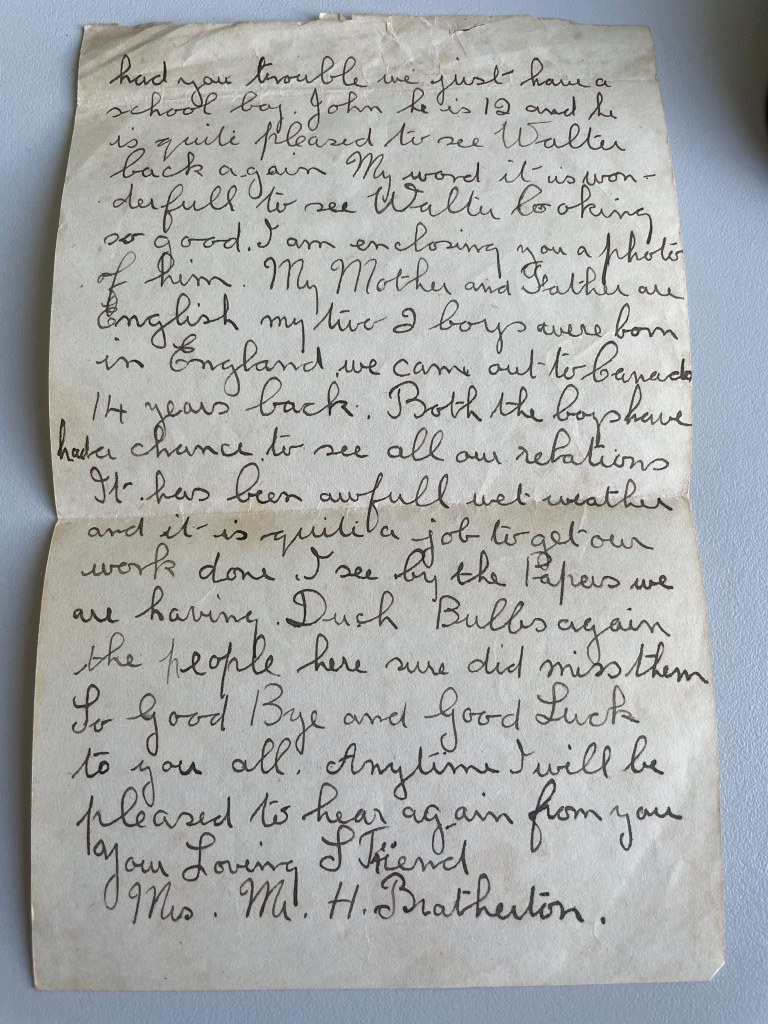 had you trouble we just have a
school boy. John he is 12 and he
is quite pleased to see Walter
back again My word it is won-
derfull to see Walter looking
so good. I am enclosing you a photo
of him. My Mother and Father are
English my two 2 boys were born
in England we came out to Canada
14 years back. Both the boys have
had a chance to see all our relations
It has been awfull wet weather
and it is quite a job to get our
work done. I see by the Papers we
are having. Duch Bulbs again
the people here sure did miss them
So Good Bye and Good Luck
to you all. Anytime I will be
pleased to hear again from you
Your Loving Friend
Mrs. M. H. Bratherton.